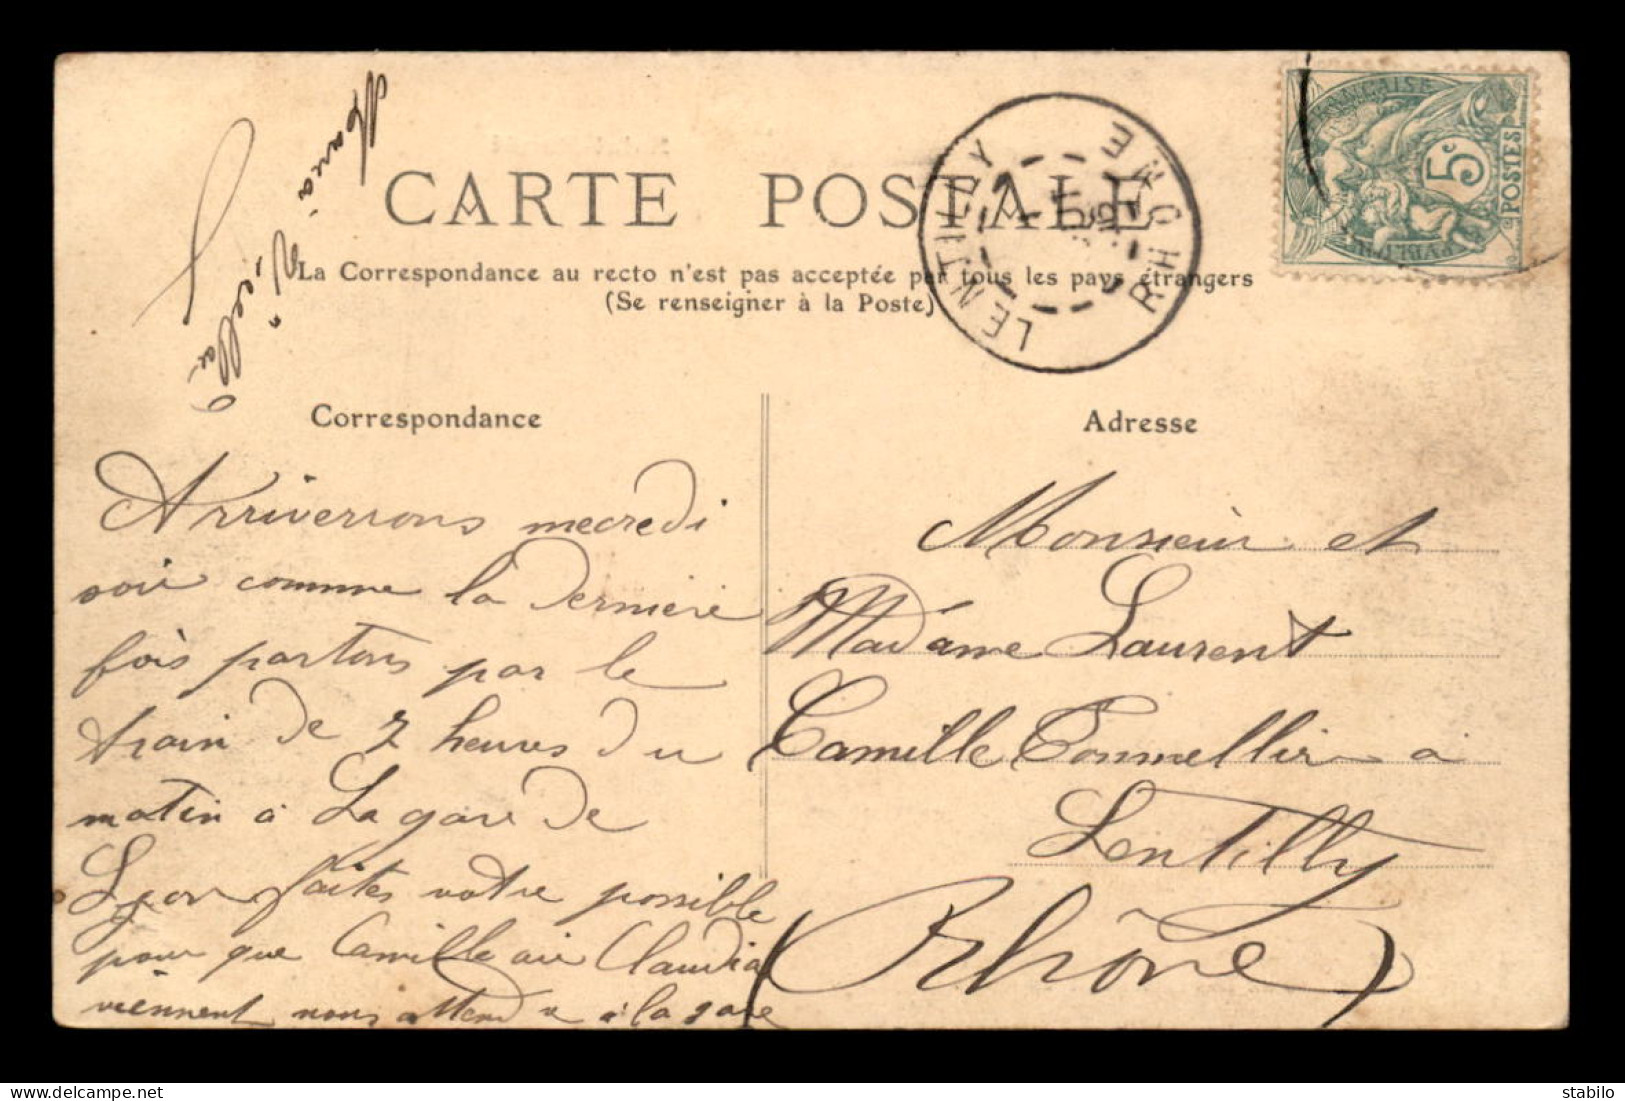 Maria Viella
CARTE POSTALE
La Correspondance au recto n'est pas acceptée par tous les pays étrangers
(Se renseigner à la Poste)
LENTILLY
RHONE
RANÇAISE
5c
POSTES
Correspondance
Adresse
Arriverrons mecredi
soir comme la derniere
fois partons par le
train de 7 heures du
matin à La gare de
Lyon faites votre possible
pour que Camille Claudia
viennent nous attendre à la gare
Monsieur et
Madame Laurent
Camille Tonnellier à
Lentilly
(Rhône)
stabilo